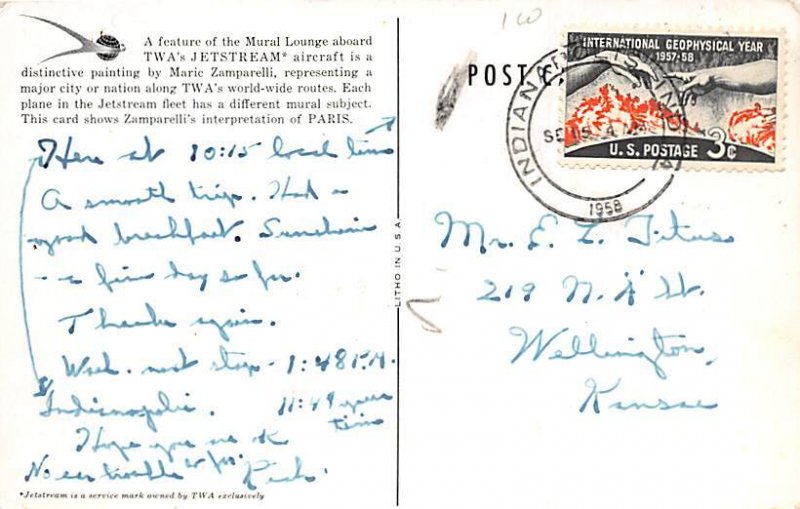 A feature of the Mural Lounge aboard
TWA's JETSTREAM* aircraft is a
distinctive painting by Maric Zamparelli, representing a
major city or nation along TWA's world-wide routes. Each
plane in the Jetstream fleet has a different mural subject.
This card shows Zamparelli's interpretation of PARIS.
Here at 10:15 local time
A smooth trip. Had a
good breakfast. Sunshine
- a fine day so far.
Thanks again.
Wash. next stop - 1:48 P.M.
Indianapolis. 11:49 your
time
Hope you are ok
No ear trouble so far. Rich.
*Jetstream is a service mark owned by TWA exclusively
LITHO IN U.S.A.
POST C
INTERNATIONAL GEOPHYSICAL YEAR
1957-58
U.S. POSTAGE 3¢
INDIANAPOLIS
1958
Mr. E. L. Titus
219 N. A St.
Wellington,
Kansas